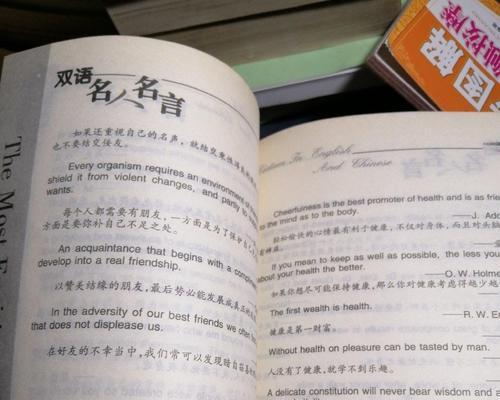 双语
名人名言
如果还重视自己的名声，就结交
也不要结交佞友。
Every organism requires an environment of
shield it from violent changes, and partly to
wants.
每个人都需要有朋友，一方面是为了保护自己
方面是要弥补自己不足之处。
An acquaintance that begins with a
develop into a real friendship.
以赞美结缘的朋友，最后势必能发展成真正的
In the adversity of our best friends we often
that does not displease us.
在好友的不幸当中，我们常可以发现暗自
The Most
In English
And Chinese
Cheerfulness is the best promoter of health and is as
to the mind as to the body.
轻松愉快的心情最有利于健康，不仅对身体，而且对头脑
If you mean to keep as well as possible, the less you
about your health the better.
——O. W. Holm
如果你想尽可能保持健康，那么你对健康考虑得越少越
The first wealth is health.
——R. W.
健康是第一财富。
Without health on pleasure can be tasted by man.
人没有了健康，就学不到乐趣。
A delicate constitution will never bear wisdom and
图解
按摩